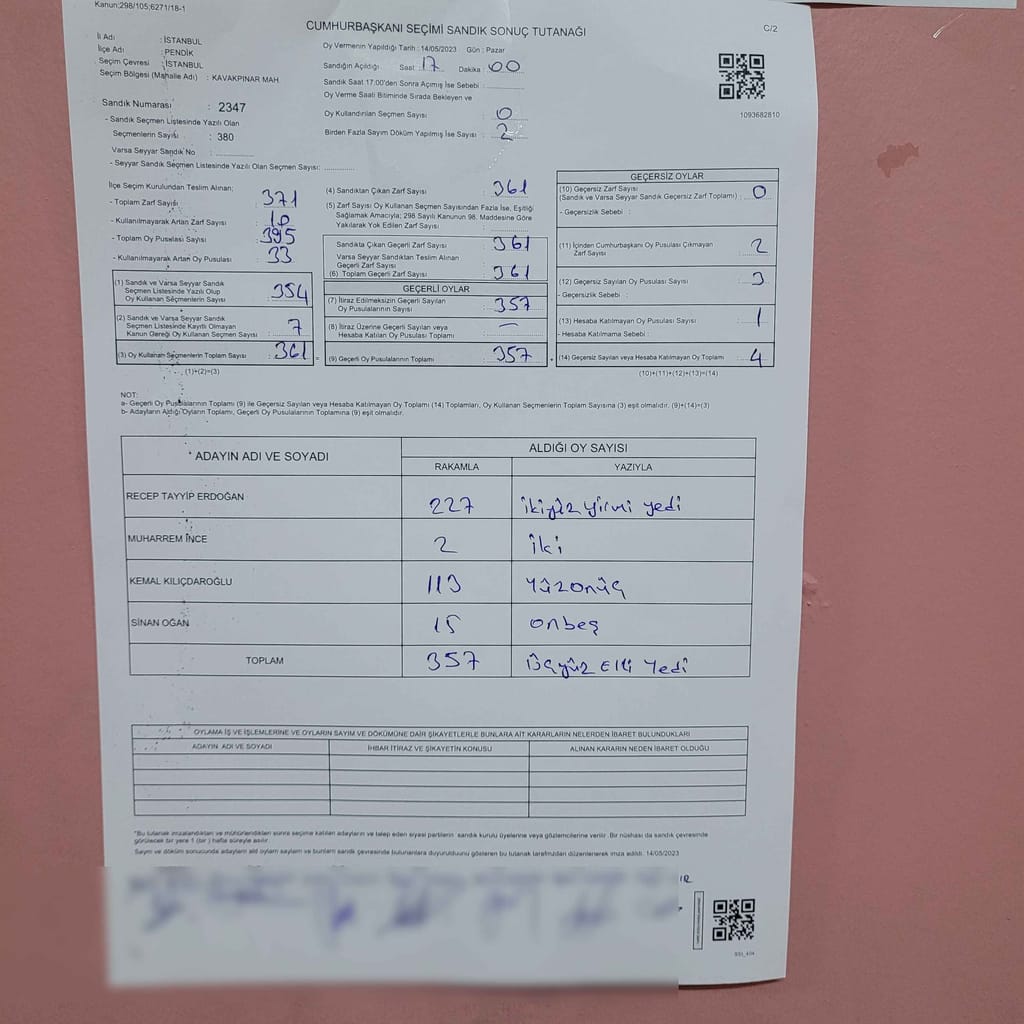 Kanun:298/105;6271/18-1
CUMHURBAŞKANI SEÇİMİ SANDIK SONUÇ TUTANAĞI
C/2
İl Adı : İSTANBUL
İlçe Adı : PENDİK
Seçim Çevresi : İSTANBUL
Seçim Bölgesi (Mahalle Adı) : KAVAKPINAR MAH
Sandık Numarası : 2347
- Sandık Seçmen Listesinde Yazılı Olan
Seçmenlerin Sayısı : 380
Varsa Seyyar Sandık No :
- Seyyar Sandık Seçmen Listesinde Yazılı Olan Seçmen Sayısı:
Oy Vermenin Yapıldığı Tarih : 14/05/2023 Gün : Pazar
Sandığın Açıldığı Saat : 17 Dakika : 00
Sandık Saat 17:00'den Sonra Açımış İse Sebebi :
Oy Verme Saati Bitiminde Sırada Bekleyen ve
Oy Kullandırılan Seçmen Sayısı : 0
Birden Fazla Sayım Döküm Yapılmış İse Sayısı : 2
1093682810
İlçe Seçim Kurulundan Teslim Alınan;
- Toplam Zarf Sayısı : 371
- Kullanılmayarak Artan Zarf Sayısı : 10
- Toplam Oy Pusulası Sayısı : 395
- Kullanılmayarak Artan Oy Pusulası : 33
(1) Sandık ve Varsa Seyyar Sandık
Seçmen Listesinde Yazılı Olup
Oy Kullanan Seçmenlerin Sayısı : 354
(2) Sandık ve Varsa Seyyar Sandık
Seçmen Listesinde Kayıtlı Olmayan
Kanun Gereği Oy Kullanan Seçmen Sayısı : 7
(3) Oy Kullanan Seçmenlerin Toplam Sayısı : 361 =
(1)+(2)=(3)
(4) Sandıktan Çıkan Zarf Sayısı : 361
(5) Zarf Sayısı Oy Kullanan Seçmen Sayısından Fazla İse, Eşitliği
Sağlamak Amacıyla; 298 Sayılı Kanunun 98. Maddesine Göre
Yakılarak Yok Edilen Zarf Sayısı :
Sandıkta Çıkan Geçerli Zarf Sayısı : 361
Varsa Seyyar Sandıktan Teslim Alınan
Geçerli Zarf Sayısı :
(6) Toplam Geçerli Zarf Sayısı : 361
GEÇERLİ OYLAR
(7) İtiraz Edilmeksizin Geçerli Sayılan
Oy Pusulalarının Sayısı : 357
(8) İtiraz Üzerine Geçerli Sayılan veya
Hesaba Katılan Oy Pusulası Toplamı : —
(9) Geçerli Oy Pusulalarının Toplamı : 357 +
GEÇERSİZ OYLAR
(10) Geçersiz Zarf Sayısı
(Sandık ve Varsa Seyyar Sandık Geçersiz Zarf Toplamı) : 0
- Geçersizlik Sebebi :
(11) İçinden Cumhurbaşkanı Oy Pusulası Çıkmayan
Zarf Sayısı : 2
(12) Geçersiz Sayılan Oy Pusulası Sayısı : 3
- Geçersizlik Sebebi :
(13) Hesaba Katılmayan Oy Pusulası Sayısı : 1
- Hesaba Katılmama Sebebi :
(14) Geçersiz Sayılan veya Hesaba Katılmayan Oy Toplamı : 4
(10)+(11)+(12)+(13)=(14)
NOT:
a- Geçerli Oy Pusulalarının Toplamı (9) ile Geçersiz Sayılan veya Hesaba Katılmayan Oy Toplamı (14) Toplamları, Oy Kullanan Seçmenlerin Toplam Sayısına (3) eşit olmalıdır. (9)+(14)=(3)
b- Adayların Aldığı Oyların Toplamı, Geçerli Oy Pusulalarının Toplamına (9) eşit olmalıdır.
ADAYIN ADI VE SOYADI
ALDIĞI OY SAYISI
RAKAMLA YAZIYLA
RECEP TAYYİP ERDOĞAN 227 ikiyüz yirmi yedi
MUHARREM İNCE 2 iki
KEMAL KILIÇDAROĞLU 113 Yüzonüç
SİNAN OĞAN 15 onbeş
TOPLAM 357 Üçyüz Elli Yedi
OYLAMA İŞ VE İŞLEMLERİNE VE OYLARIN SAYIM VE DÖKÜMÜNE DAİR ŞİKAYETLERLE BUNLARA AİT KARARLARIN NELERDEN İBARET BULUNDUKLARI
ADAYIN ADI VE SOYADI İHBAR İTİRAZ VE ŞİKAYETİN KONUSU ALINAN KARARIN NEDEN İBARET OLDUĞU
*Bu tutanak imzalandıktan ve mühürlendikten sonra seçime katılan adayların ve talep eden siyasi partilerin sandık kurulu üyelerine veya gözlemcilerine verilir. Bir nüshası da sandık çevresinde
görülecek bir yere 1 (bir) hafta süreyle asılır.
Sayım ve döküm sonucunda adayların aldığı oyların sayısını ve bunların sandık çevresinde bulunanlara duyurulduğunu gösteren bu tutanak tarafımızdan düzenlenerek imza edildi. 14/05/2023